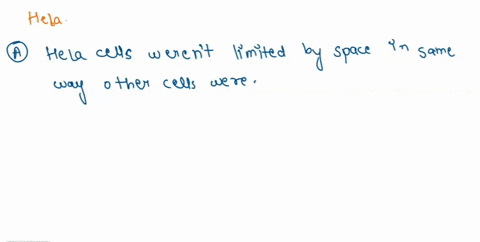 Hela.
A Hela cells weren't limited by space in same
way other cells were.